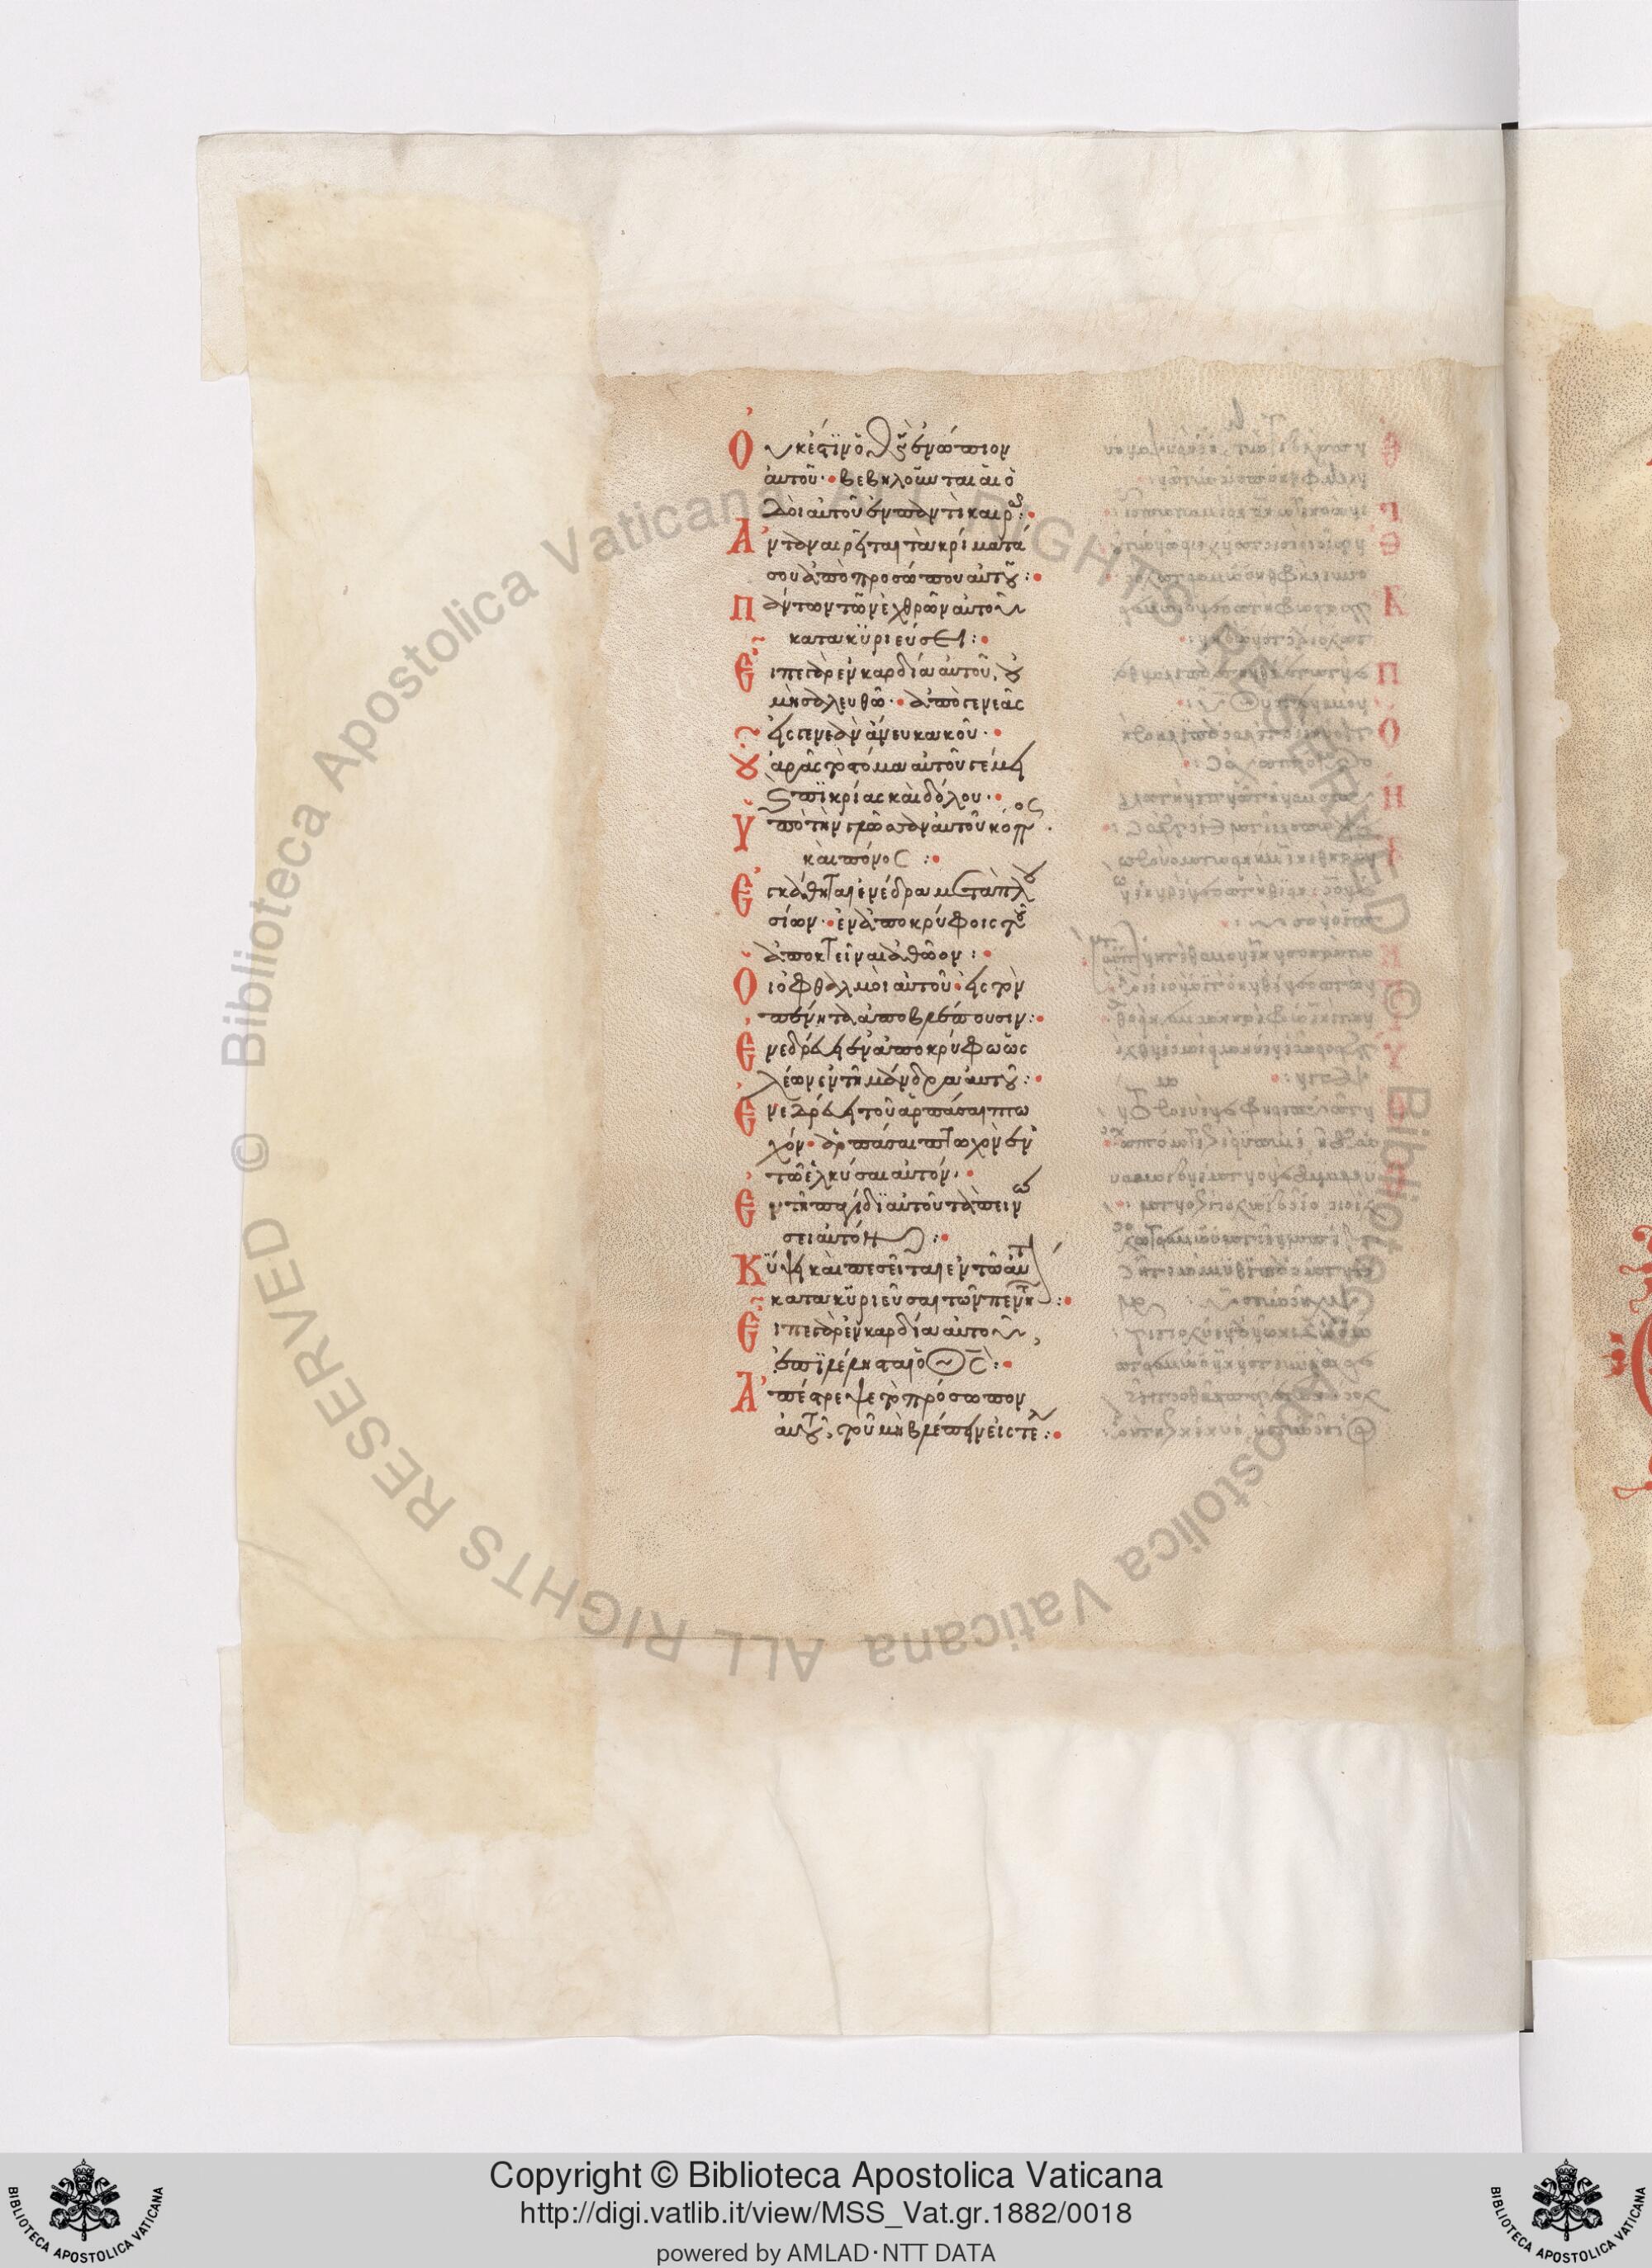 Οὐκ ἔστιν ὁ Θς ἐνώπιον
αὐτοῦ· βεβηλοῦνται αἱ ὁ
δοὶ αὐτοῦ ἐν παντὶ καιρῶ:
Ἀνταναιρεῖται τὰ κρίματά
σου ἀπὸ προσώπου αὐτοῦ:
Πάντων τῶν ἐχθρῶν αὐτοῦ
κατακϋριεύσει:
Εἶπε γὰρ ἐν καρδία αὐτοῦ, οὐ
μὴ σαλευθῶ· ἀπὸ γενεᾶς
εἰς γενεὰν ἄνευ κακοῦ·
Οὗ ἀρᾶς τὸ στόμα αὐτοῦ γέμει
καὶ πϊκρίας καὶ δόλου·
Ὑπὸ τὴν γλῶσσαν αὐτοῦ κόπος
καὶ πόνος:
Ἐγκάθηται ἐνέδρα μετὰ πλου
σίων· ἐν ἀποκρύφοις τοῦ
ἀποκτεῖναι ἀθῶον:
Οἱ ὀφθαλμοὶ αὐτοῦ εἰς τὸν
πένητα ἀποβλέπουσιν:
Ἐνεδρεύει ἐν ἀποκρύφω ὡς
λέων ἐν τῆ μάνδρα αὐτοῦ:
Ἐνεδρεύει τοῦ ἁρπάσαι πτω
χόν· ἁρπάσαι πτωχὸν ἐν
τῶ ἑλκύσαι αὐτόν·
Ἐν τῆ παγίδϊ αὐτοῦ ταπεινώ
σει αὐτόν:
Κύψει καὶ πεσεῖται ἐν τῶ αὐτὸν
κατακϋριεῦσαι τῶν πενήτων:
Εἶπε γὰρ ἐν καρδία αὐτοῦ,
ἐπϊλέλησται ὁ Θς:
Ἀπέστρεψε τὸ πρόσωπον
αὐτοῦ, τοῦ μὴ βλέπειν εἰς τέλος:
Copyright © Biblioteca Apostolica Vaticana
http://digi.vatlib.it/view/MSS_Vat.gr.1882/0018
powered by AMLAD·NTT DATA
BIBLIOTECA APOSTOLICA VATICANA
BIBLIOTECA APOSTOLICA VATICANA
© Biblioteca Apostolica Vaticana ALL RIGHTS RESERVED © Biblioteca Apostolica Vaticana ALL RIGHTS RESERVED